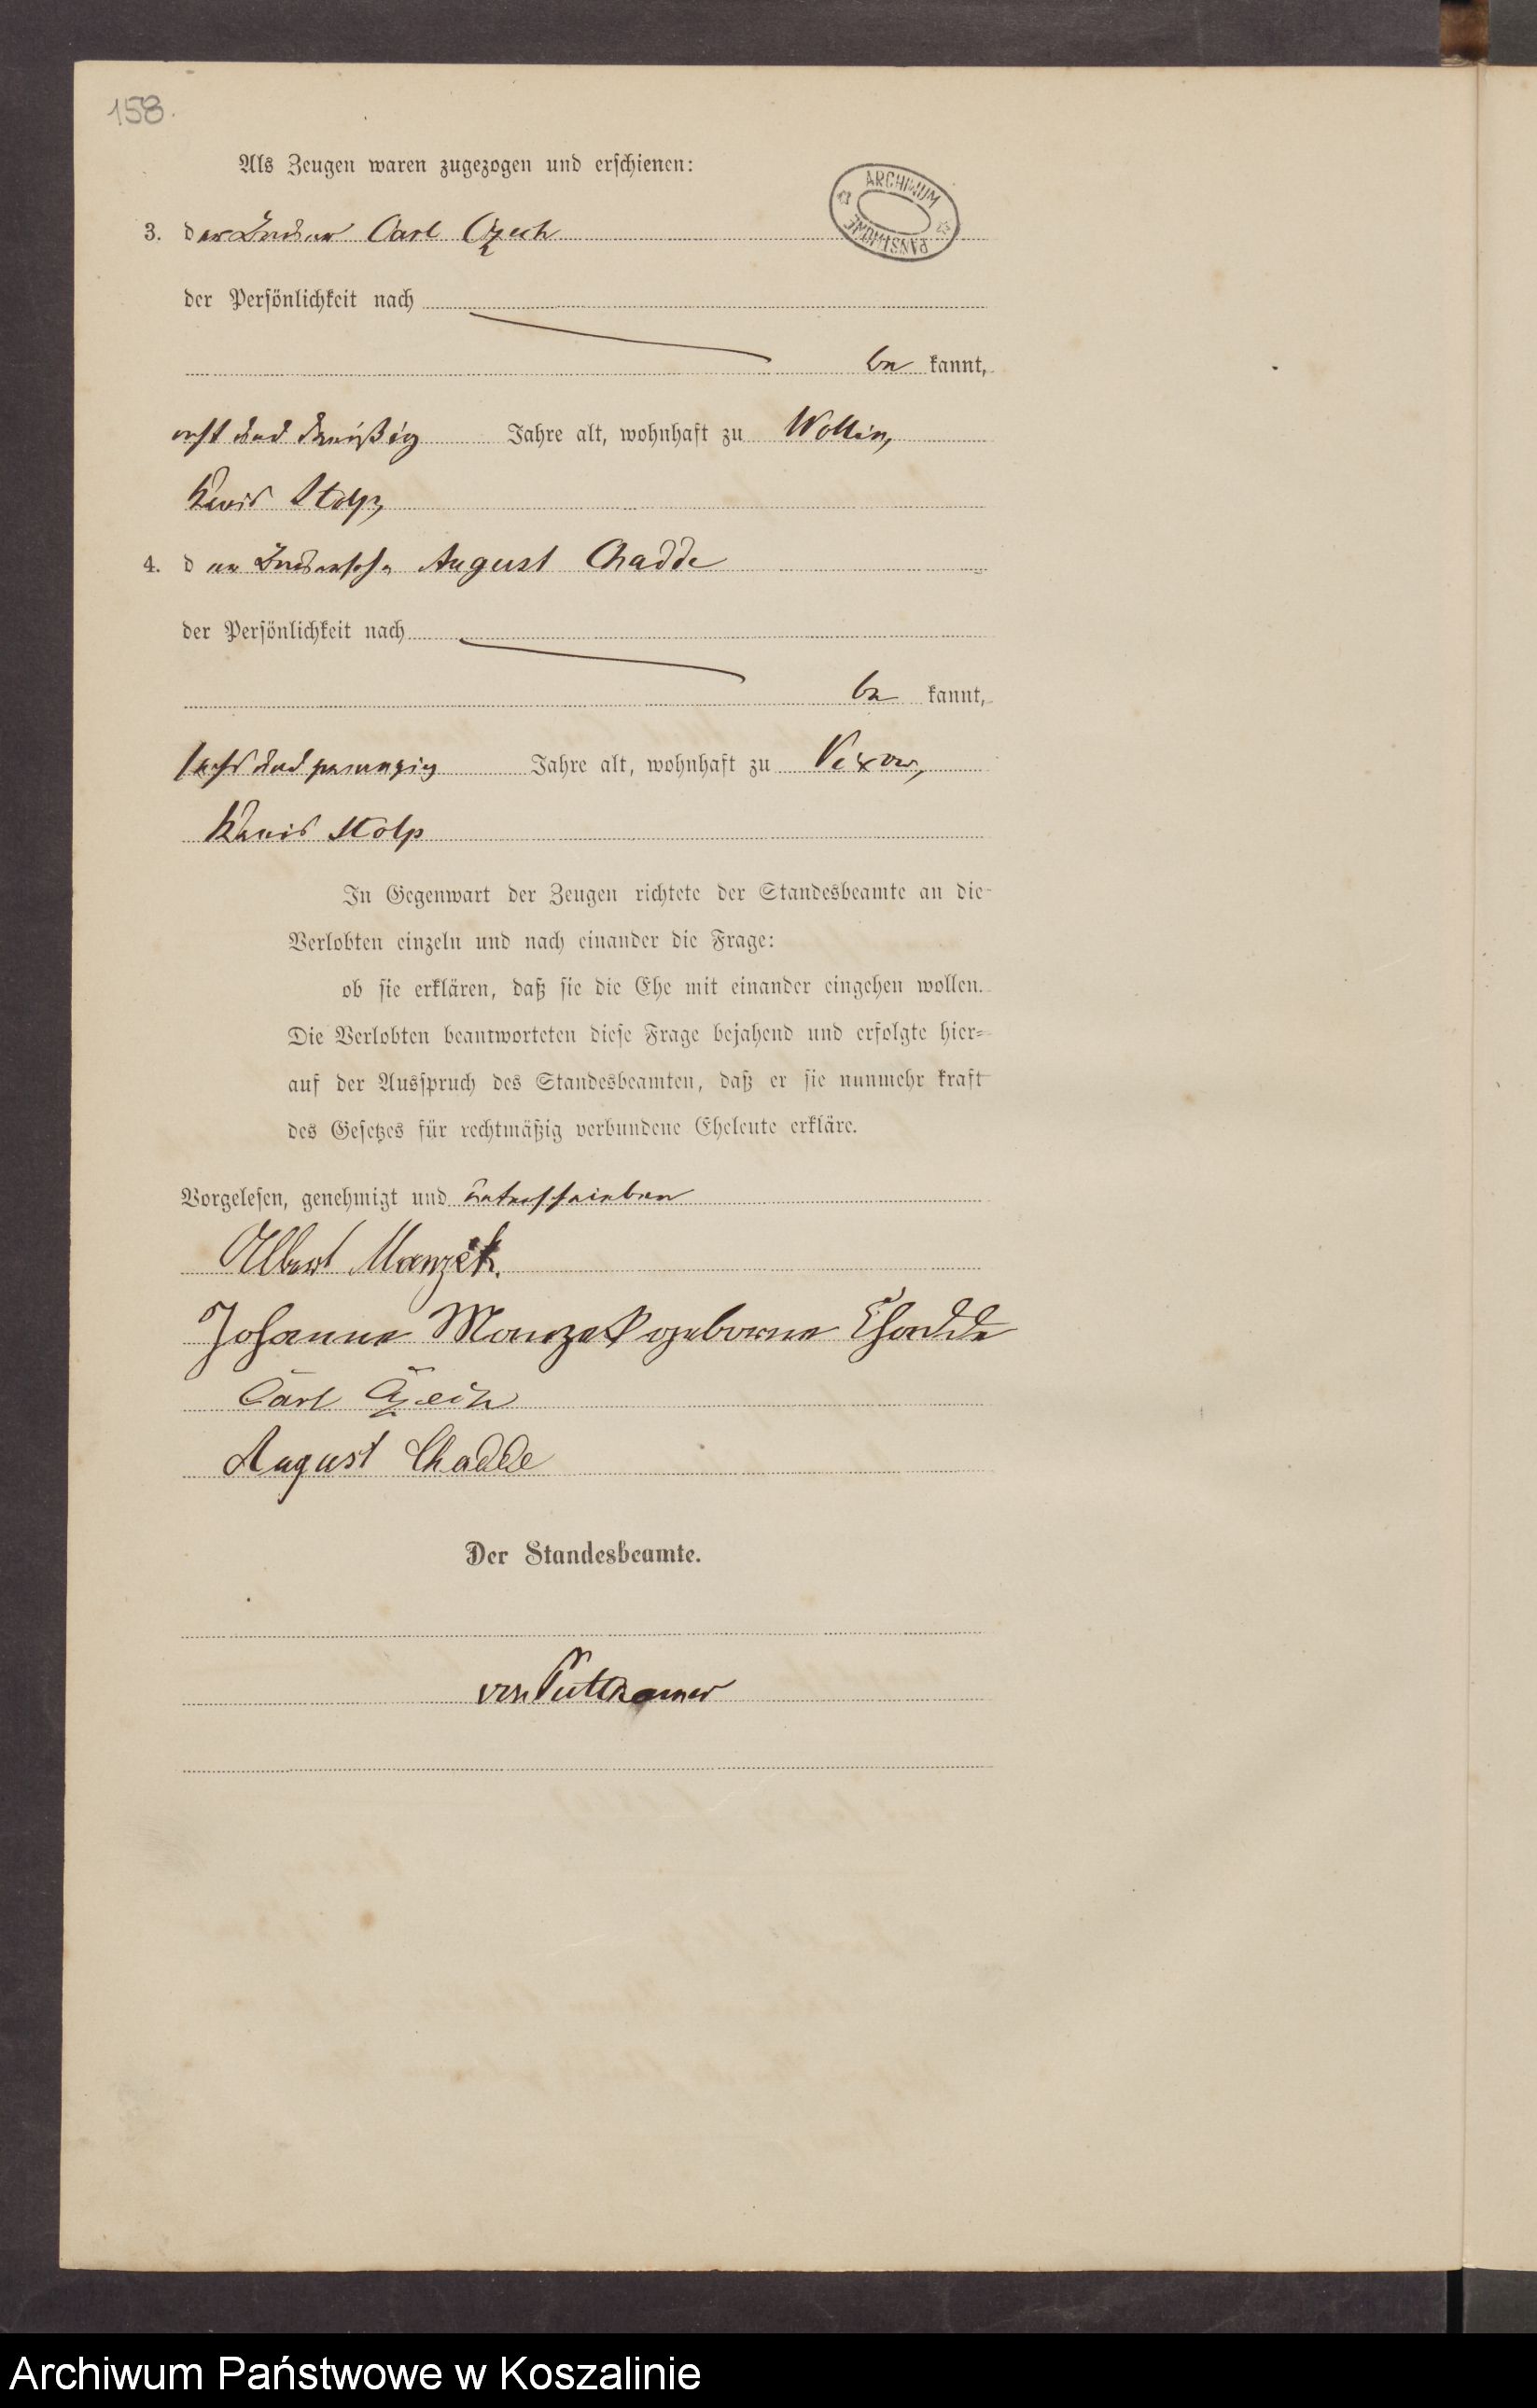 158.
Als Zeugen waren zugezogen und erschienen:
ARCHIWUM PAŃSTWOWE
3. der Carl Czech
der Persönlichkeit nach
be kannt,
acht und dreißig Jahre alt, wohnhaft zu Wollin,
Kreis Stolp,
4. der August Chadde
der Persönlichkeit nach
be kannt,
sechs und zwanzig Jahre alt, wohnhaft zu Vixow,
Kreis Stolp
In Gegenwart der Zeugen richtete der Standesbeamte an die
Verlobten einzeln und nach einander die Frage:
ob sie erklären, daß sie die Ehe mit einander eingehen wollen.
Die Verlobten beantworteten diese Frage bejahend und erfolgte hier-
auf der Ausspruch des Standesbeamten, daß er sie nunmehr kraft
des Gesetzes für rechtmäßig verbundene Eheleute erkläre.
Vorgelesen, genehmigt und unterschrieben
Albert Manzek.
Johanne Manzek geborene Chadde
Carl Czech
August Chadde
Der Standesbeamte.
von Puttkamer
Archiwum Państwowe w Koszalinie